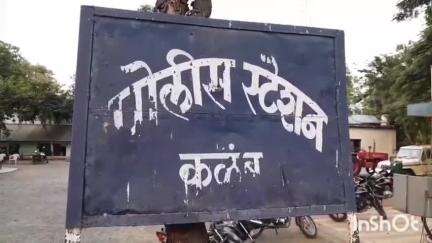 पोलीस स्टेशन
कळंब
InShOt